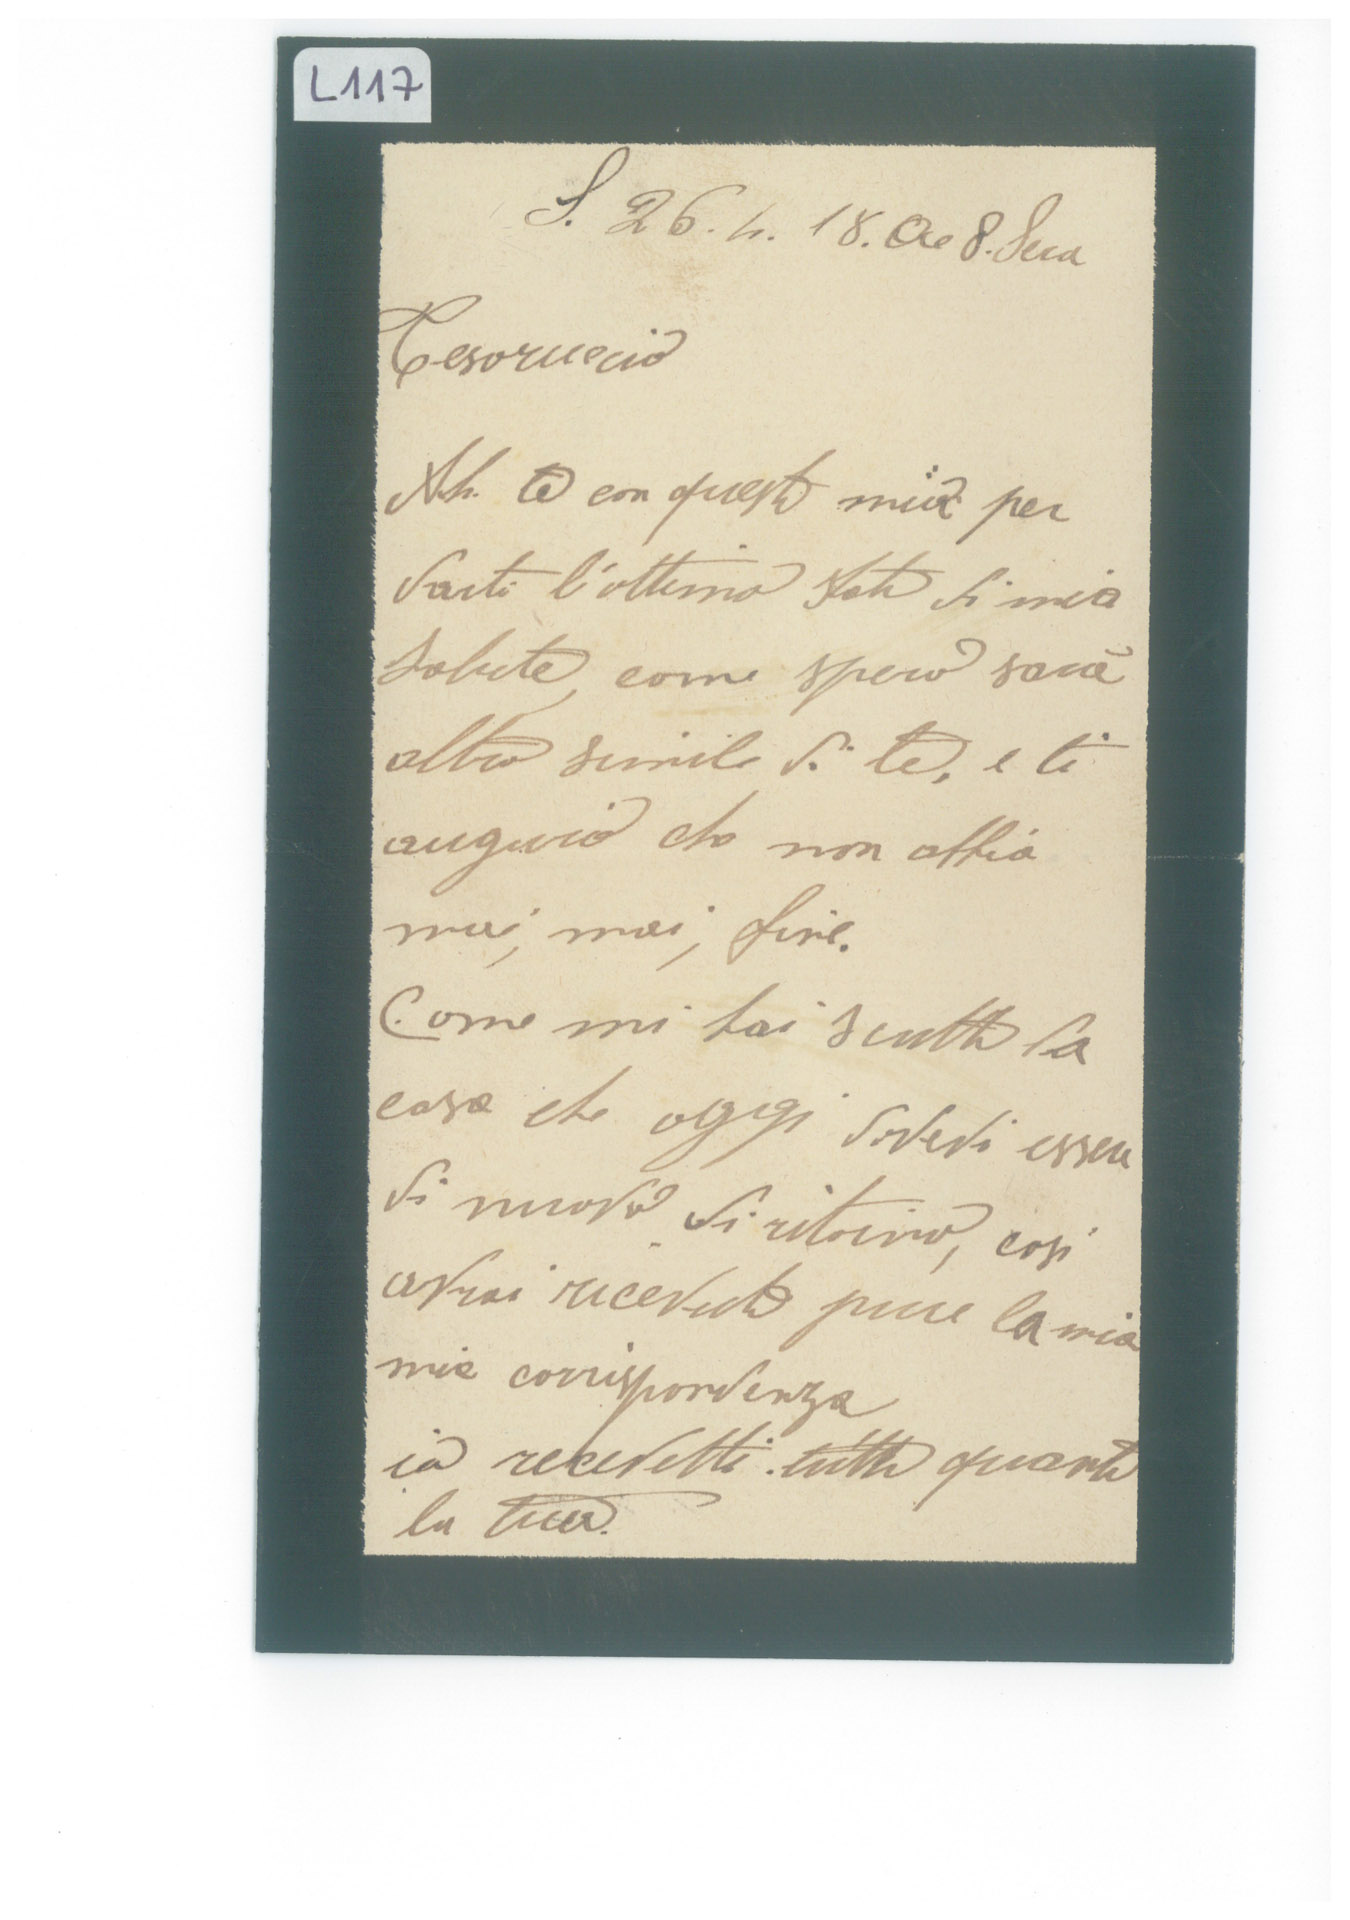 L117
S. 26. 4. 18. Ore 8. Sera
Tesoruccio
A te con questo mio per
darti l'ottimo stato di mia
salute, come spero sarà
altro simile di te, e ti
augurio che non abbia
mai, mai, fine.
Come mi hai scritto la
casa che oggi dovevi essere
di nuovo di ritorno, così
avrai ricevuto pure la mia
mia corrispondenza
io recevetti tutto quanto
la tua.